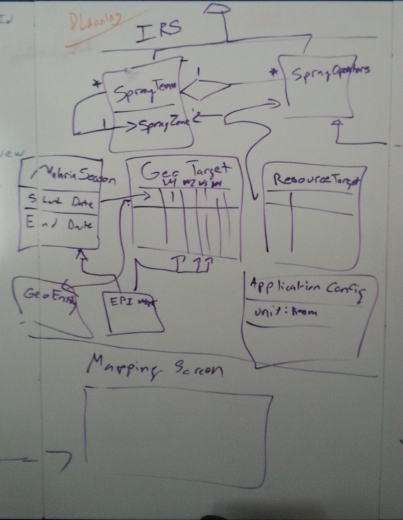 Planning
IRS
* 1 *
SprayTeam
SprayOperators
1 SprayZone
Malaria Season
Start Date
End Date
Geo Target
W1 W2 W3 W4
ResourceTarget
GeoEntity
EPI
Application Config
unit: Room
Mapping Screen